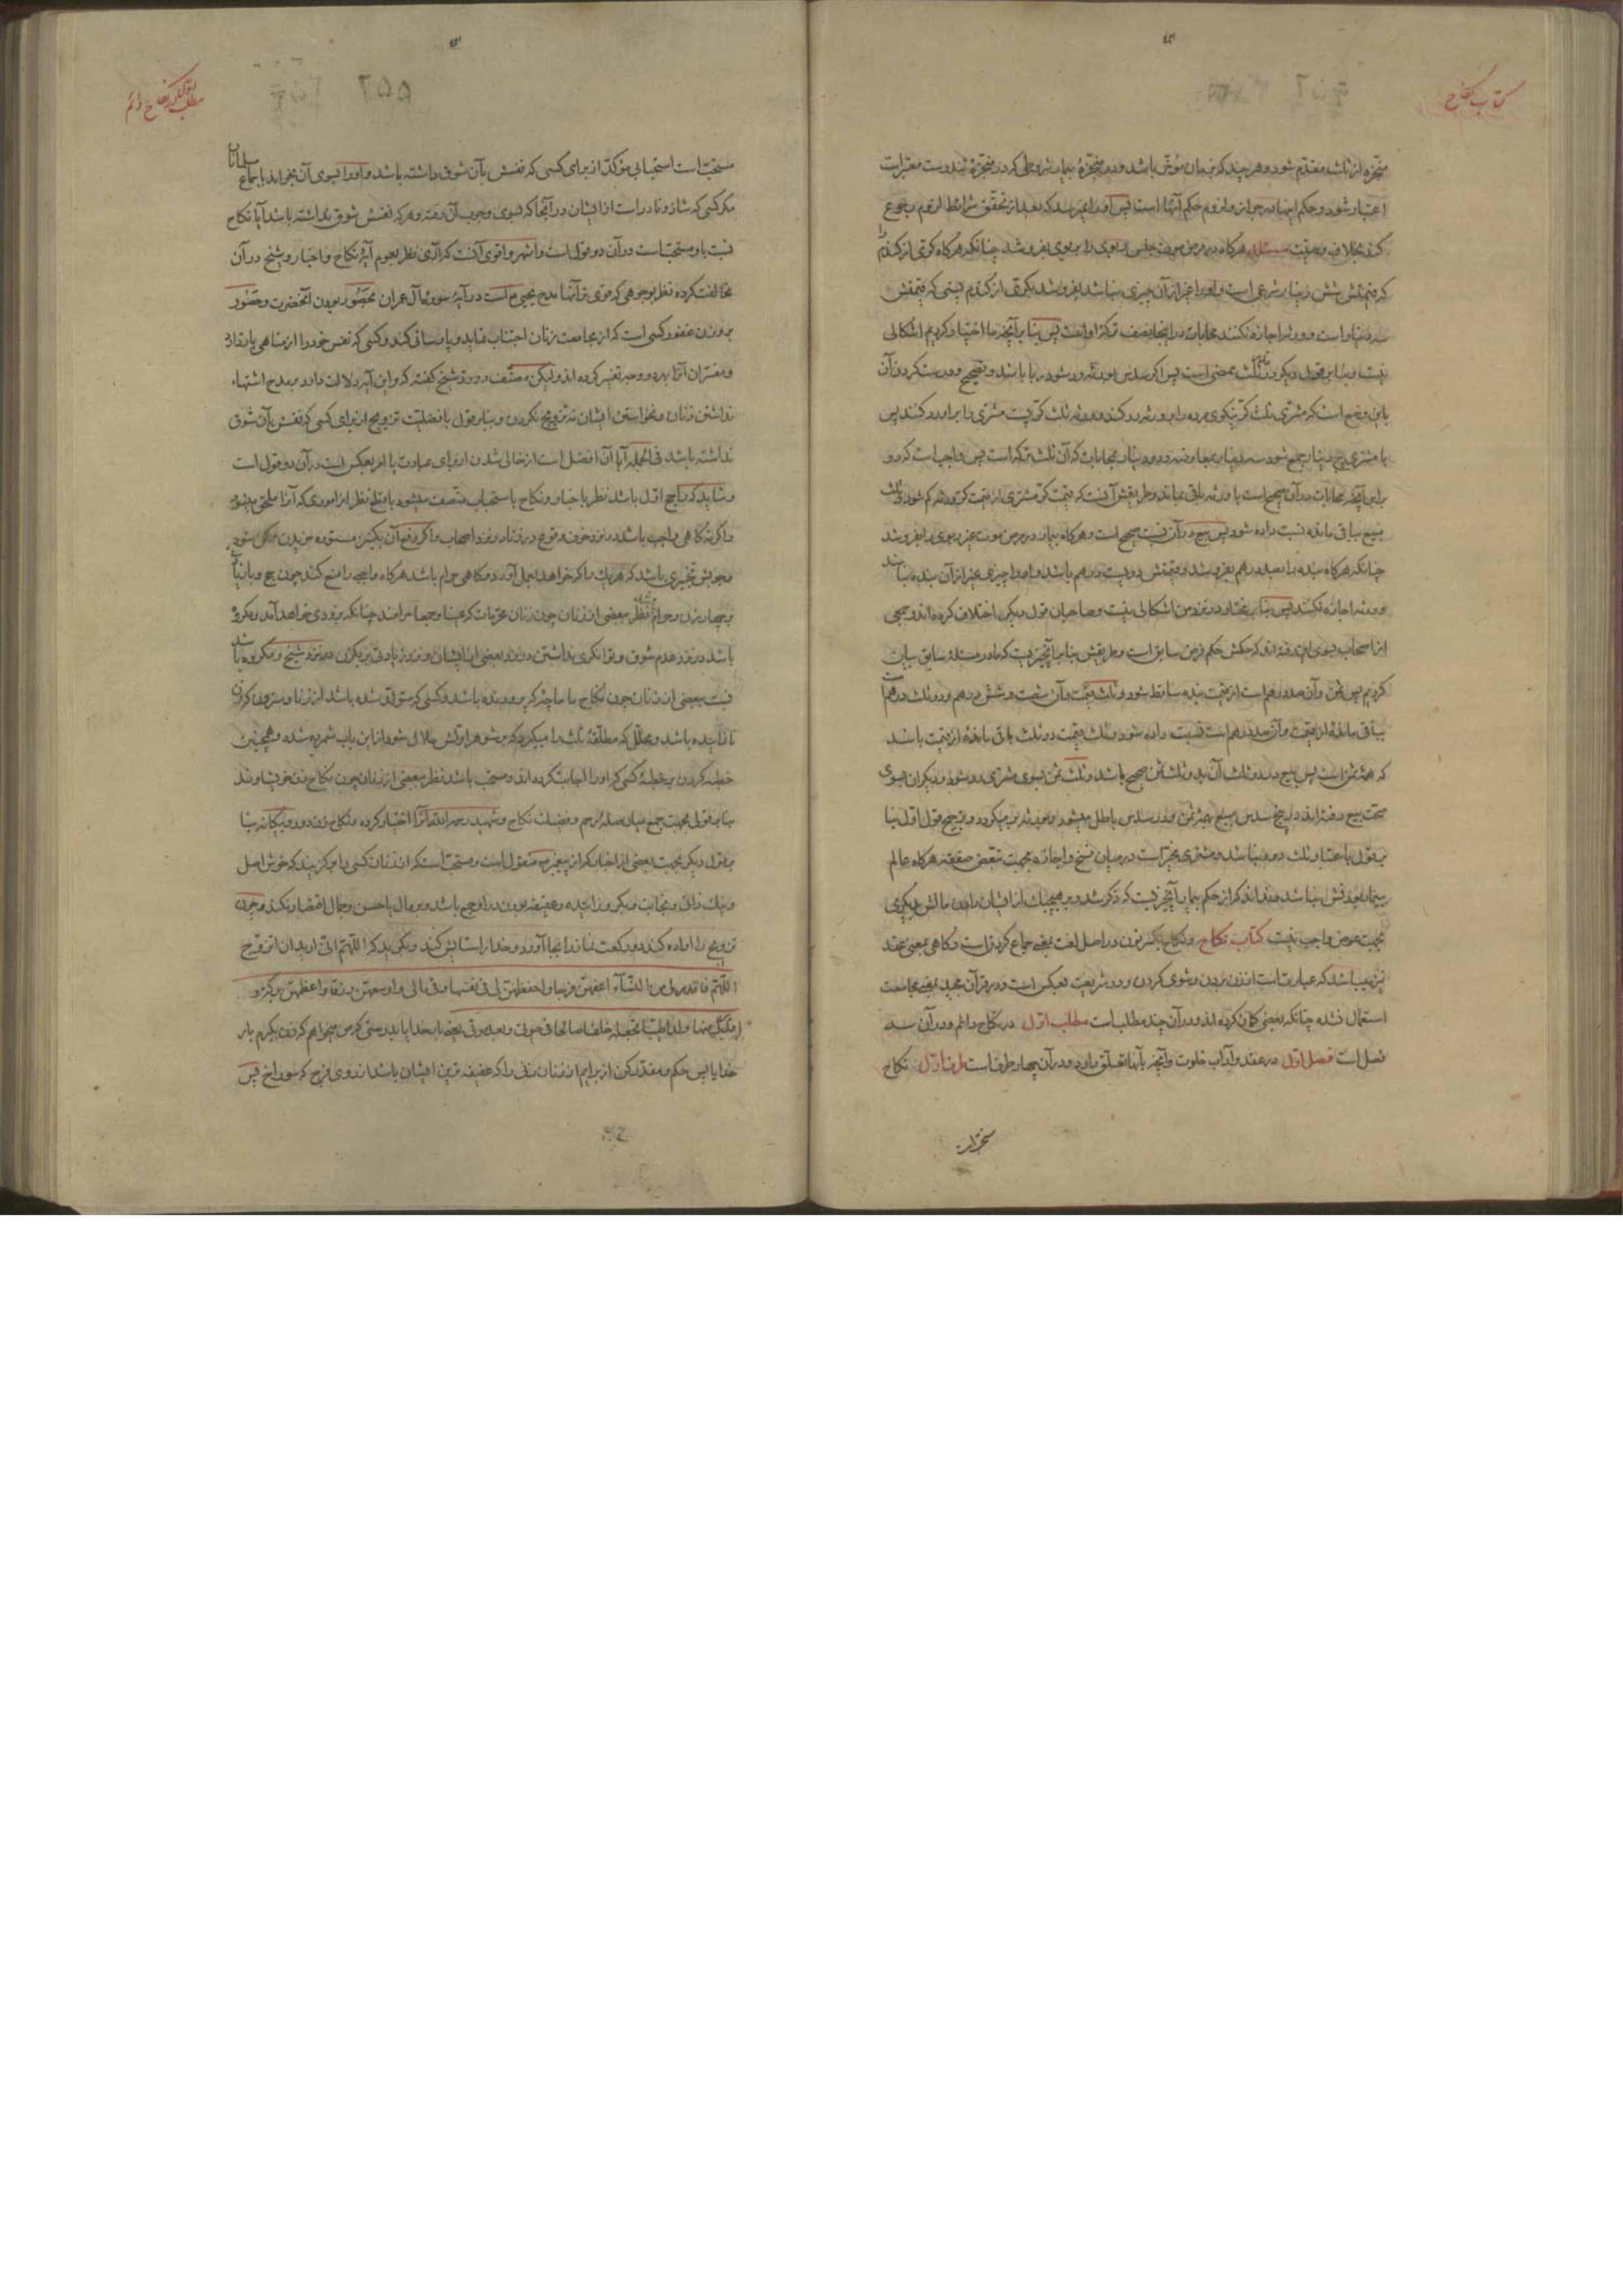 کتاب نکاح
منجزه از ثلث مقدم شود و هر چند که بزمان مؤخر باشد و در منجزهٔ بیمار شروطی که در منجزهٔ تندرست معتبر است
اعتبار شود و حکم اینها در جواز و لزوم حکم آنها است پس او را نمیرسد که بعد از تحقق شرایط لزوم رجوع
کند بخلاف وصیت مسئله هرگاه در مرض موت جنس ربوی را بربوی بفروشد چنانکه هرگاه کری از گندم را
که قیمتش شش دینار شرعی است و او را غیر از آن چیزی نباشد بفروشد بکری از گندم پستی که قیمتش
سه دینار است و ورثه اجازه نکنند محابات در اینجا بنصف ترکهٔ او است پس بنابر آنچه ما اختیار کردیم اشکالی
نیست و بنابر قول دیگر در ثلث ممضی است پس اگر سدس بورثه رد شود ربا باشد و تصحیح و درست کردن آن
باین وضع است که مشتری ثلث کر نیکوی مرده را بورثه رد کند و ورثه ثلث کر پست مشتری را بر او رد کنند پس
با مشتری پنج دینار جمع شود سه دینار بمعاوضه و دو دینار بمحابات که آن ثلث ترکه است پس واجب است که در
برابر آنچه محابات در آن صحیح است با ورثه باقی بماند و طریقش آنست که قیمت کر مشتری از قیمت کر ورثه کم شود و ثلث
مبیع بباقی مانده نسبت داده شود پس بیع در آن نسبت صحیح است و هرگاه بیمار در مرض موت غیر ربوی را بفروشد
چنانکه هرگاه بنده را بصد درهم بفروشد و قیمتش دویست درهم باشد و او را چیزی غیر از آن بنده نباشد
و ورثه اجازه نکنند پس بنا بمختار در نزد من اشکالی نیست و صاحبان قول دیگر اختلاف کرده‌اند و جمعی
از اصحاب بسوی این رفته‌اند که حکمش حکم فرض سابق است و طریقش بنابر آنچیزیست که ما در مسئلهٔ سابق بیان
کردیم پس ثمن و آن صد درهم است از قیمت بنده ساقط شود و ثلث قیمت و آن شصت و شش درهم و دو ثلث درهم است
بباقی ماندهٔ از قیمت و آن صد درهم است نسبت داده شود و ثلث قیمت دو ثلث باقی ماندهٔ از قیمت باشد
که همهٔ ثمن است پس بیع در دو ثلث آن بدو ثلث ثمن صحیح باشد و ثلث ثمن بسوی مشتری رد شود و دیگران بسوی
صحت بیع رفته‌اند در پنج سدس مبیع بهمهٔ ثمن و در سدس باطل میشود و بورثه برمیگردد و ترجیح قول اول بنا
بر قول باعتبار ثلث دور نباشد و مشتری مخیر است در میان فسخ و اجازه بجهت تبعض صفقه هرگاه عالم
ببیماری مرضش نباشد مفاد آنکه از حکم بیمار بآنچیزیست که ذکر شد و بر هیچیک از ایشان دادن مالش بدیگری
بجهت عوض واجب نیست کتاب نکاح و نکاح بکسر نون در اصل لغت بمعنی جماع کردنست و گاهی بمعنی عقد
نیز میباشد که عبارت است از زن بردن و شوی کردن و در شریعت بعکس است و در قرآن مجید بمعنی مجامعت
استعمال نشده چنانکه بعضی گمان کرده‌اند و در آن چند مطلب است مطلب اول در نکاح دائم و در آن سه
فصل است فصل اول در عقد و آداب خلوت و آنچه بآنها تعلق دارد و در آن چهار طرفست طرف اول نکاح
مستحب است استحبابی مؤکد از برای کسی که نفسش بآن شوق داشته باشد و او را بسوی آن بخواند باجماع مسلمانان
مگر کسی که شاذ و نادر است از ایشان در آنجا که بسوی وجوب آن رفته و هر که نفسش شوق نداشته باشد آیا نکاح
نسبت باو مستحب است در آن دو قول است و اشهر و اقوی آنست که آری نظر بعموم آیهٔ نکاح و اخبار و شیخ در آن
مخالفت کرده نظر بوجوهی که قوی‌تر آنها مدح یحیی ع است در آیهٔ سورهٔ آل عمران بحصور بودن آنحضرت و حصور
بر وزن غفور کسی است که از مجامعت زنان اجتناب نماید و پارسائی کند و کسی که نفس خود را از مناهی بازدارد
و مفسران آنرا بهر دو وجه تفسیر کرده‌اند ولیکن مصنف در رد شیخ گفته که و این آیه دلالت دارد بمدح اشتها
نداشتن زنان و نخواستن ایشان نه تزویج نکردن و بنابر قول بافضلیت تزویج از برای کسی که نفسش بآن شوق
نداشته باشد فی الجمله آیا آن افضل است از خالی شدن از برای عبادت یا امر بعکس است در آن دو قول است
و شاید که راجح اول باشد نظر باخبار و نکاح باستحباب متصف میشود با قطع نظر از اموری که آنرا ملحق میشود
و اگرنه گاهی واجب باشد در نزد خوف وقوع در زنا در نزد اصحاب و اگر دفع آن بکنیز مستوده خریدن ممکن شود
وجوبش تخییری باشد که هر یک را که خواهد بعمل آورد و گاهی حرام باشد هرگاه واجبی را منع کند چون حج و با زیادتی
بر چهار زن و حرام نظر ببعضی از زنان چون زنان محرمات که عینا و جمعا حرامند چنانکه بزودی خواهد آمد و مکروه
باشد در نزد عدم شوق و توانگری نداشتن در نزد بعضی از ایشان و نزد زیادتی بر یکزن در نزد شیخ و مکروه باشد
نسبت ببعضی از زنان چون نکاح با ماماچه که پرورنده باشد و کسی که متولد شده باشد از زنا و سترون که زن
نازاینده باشد و محلل که مطلقهٔ ثلث را میگیرد که بر شوهر اولش حلال شود از این باب شمرده شده و همچنین
خطبه کردن بر خطبهٔ کسی که او را اجابت کرده‌اند و مستحب باشد نظر ببعضی از زنان چون نکاح زن خویشاوند
بنابر قولی بجهت جمع میان صلهٔ رحم و فضیلت نکاح و شهید رحمه الله آنرا اختیار کرده و نکاح زن دور و بیگانه بنا
بر قول دیگر بجهت بعضی از اخبار که از پیغمبر ص منقول است و مستحب است که از زنان کسی را برگزیند که خوش اصل
و نیک ذات و نجابت و بکر و زاینده و عفیفه بودن در او جمع باشد و بر مال یا حسن و جمال اقتصار نکند و چون
تزویج را اراده کند دو رکعت نماز را بجا آورد و خدا را ستایش کند و بگوید که اللهم انی ارید ان اتزوج
اللهم فاقدر لی من النساء اعفهن فرجا و احفظهن لی فی نفسها و فی مالی و اوسعهن رزقا و اعظهمن برکة و
اقدر لی منها ولدا طیبا تجعله خلفا صالحا فی حیوتی و بعد موتی یعنی بار خدایا بدرستی که من میخواهم که زن بگیرم بار
خدایا پس حکم و مقدر کن از برایم از زنان زنی را که عفیفه ترین ایشان باشد از روی فرج که سوراخ پس